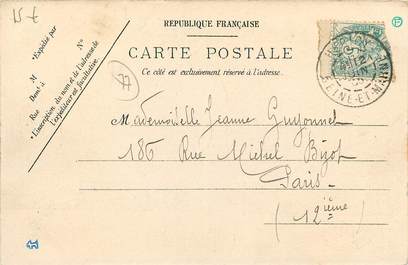 15 €
RÉPUBLIQUE FRANÇAISE
CARTE POSTALE
Ce côté est exclusivement réservé à l'adresse.
Expédié par
M
Demt à
Rue
No
L'inscription du nom et de l'adresse de
l'expéditeur est facultative.
77
SEINE-ET-MARNE
Mademoiselle Jeanne Guyonnet
186 Rue Michel Bizot
Paris
(12ième)